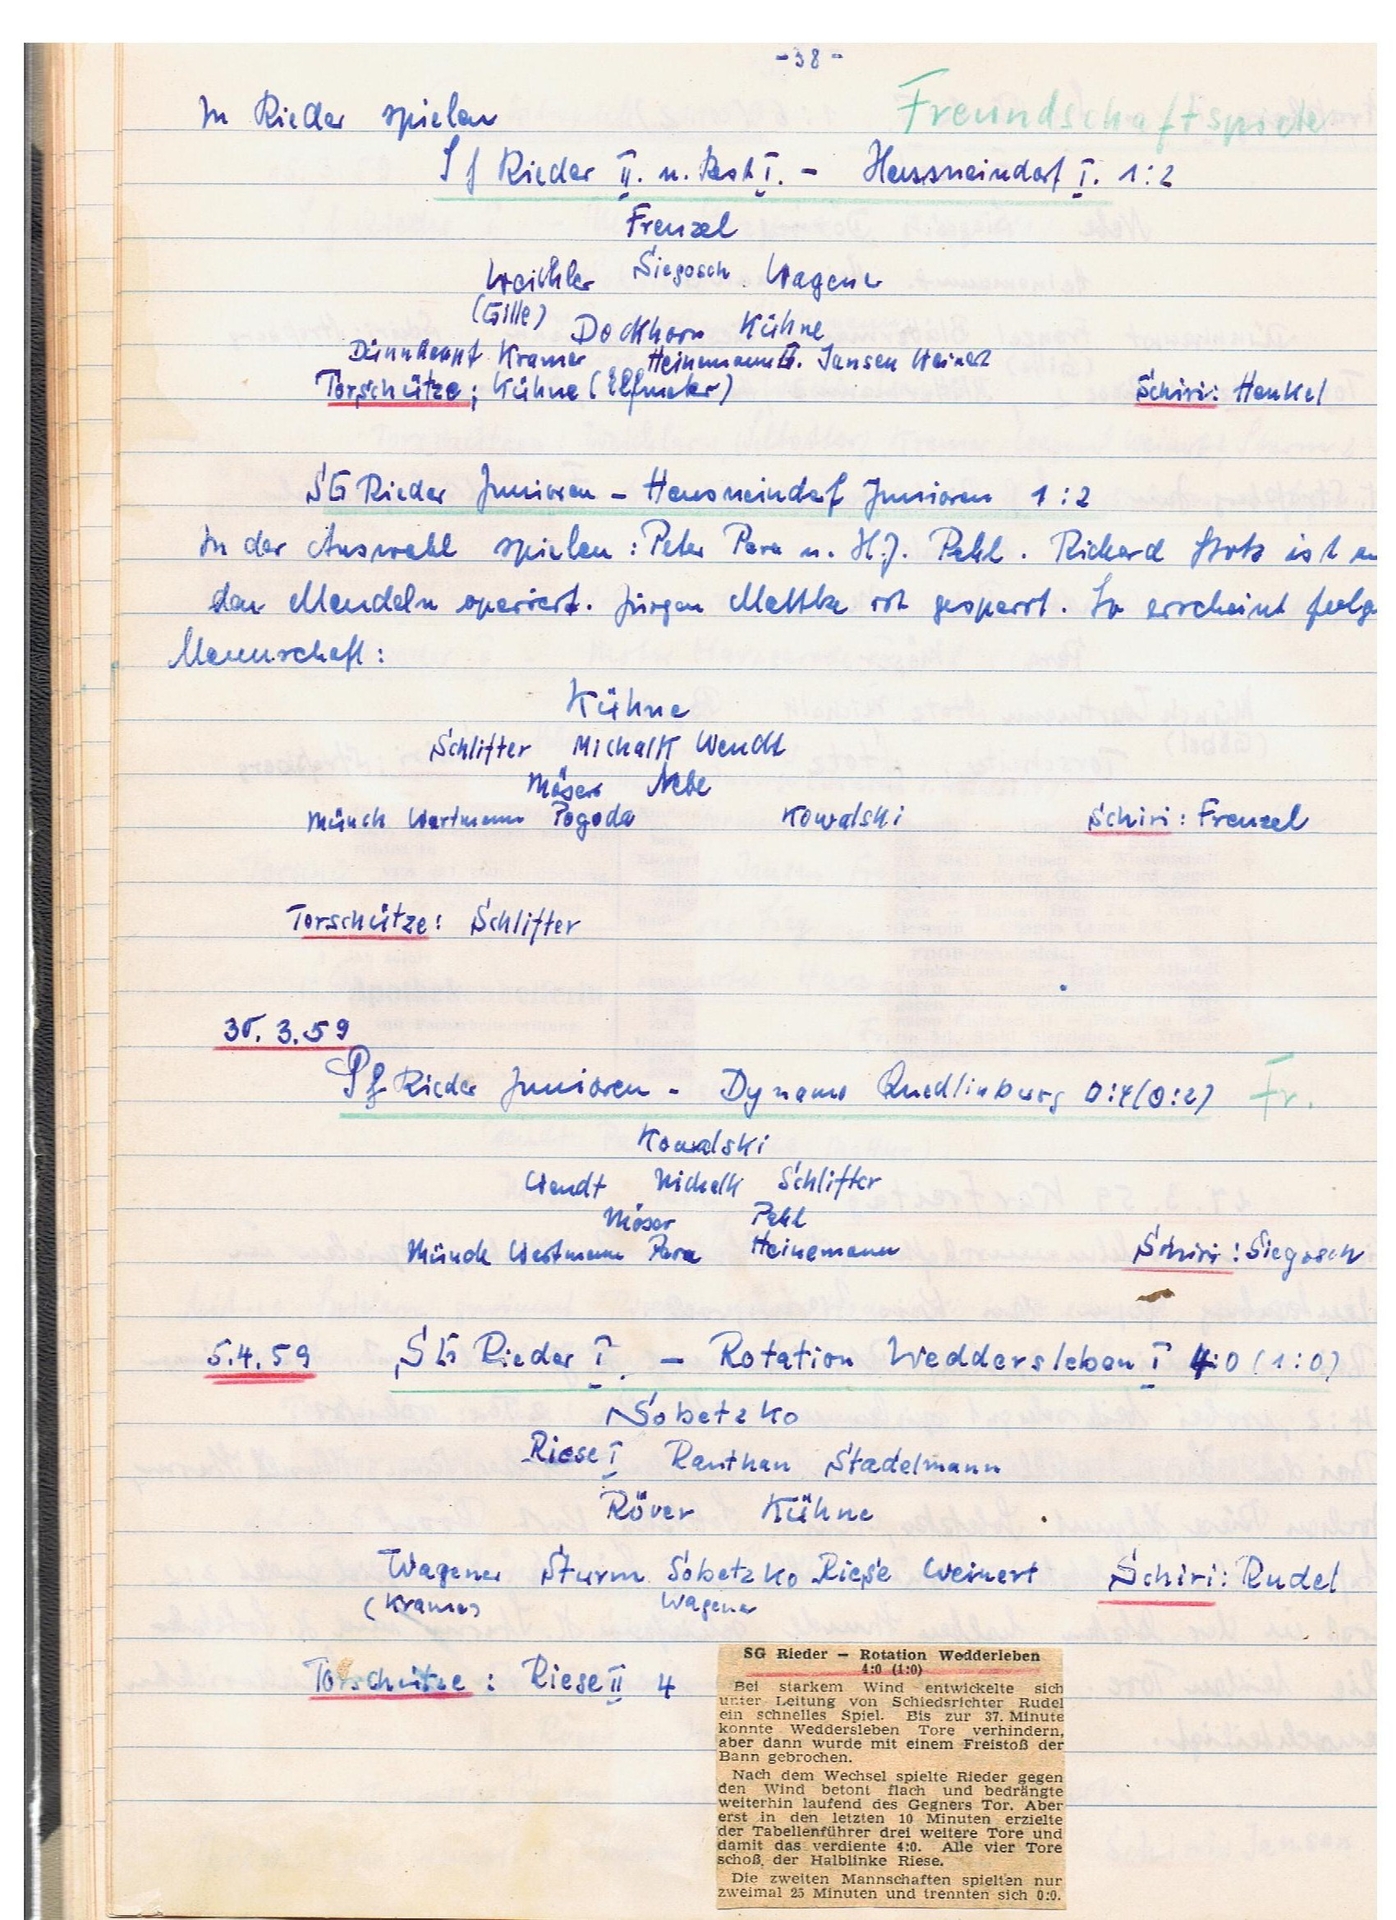 -38-
In Rieder spielen Freundschaftspiele
Sf Rieder II. u. Rest I. - Hausneindorf I. 1:2
Frenzel
Siegosch Wagener
(Gille) Dockhorn Kühne
Dünnhaupt Kramer Heinemann II. Jansen Weinert
Torschütze: Kühne (Elfmeter) Schiri: Henkel
SG Rieder Junioren - Hausneindorf Junioren 1:2
In der Auswahl spielen: Peter Para u. H.J. Pehl. Richard Stotz ist an
den Mandeln operiert. Jürgen Mattke ist gesperrt. So erscheint folge
Mannschaft:
Kühne
Schlifter Michalk Wendt
Möser Nebe
Münch Wartmann Pogoda Kowalski Schiri: Frenzel
Torschütze: Schlifter
30. 3. 59
Sf Rieder Junioren - Dynamo Quedlinburg 0:4 (0:2) Fr.
Kowalski
Wendt Michalk Schlifter
Möser Pehl
Münch Wartmann Para Heinemann Schiri: Siegosch
5.4.59 SG Rieder I. - Rotation Weddersleben I 4:0 (1:0)
Sobetzko
Riese I Ranthan Stadelmann
Röver Kühne
Wagener Sturm Sobetzko Riese Weinert Schiri: Rudel
(Kramer) Wagener
Torschütze: Riese II 4
SG Rieder — Rotation Wedderleben
4:0 (1:0)
Bei starkem Wind entwickelte sich
unter Leitung von Schiedsrichter Rudel
ein schnelles Spiel. Bis zur 37. Minute
konnte Weddersleben Tore verhindern,
aber dann wurde mit einem Freistoß der
Bann gebrochen.
Nach dem Wechsel spielte Rieder gegen
den Wind betont flach und bedrängte
weiterhin laufend des Gegners Tor. Aber
erst in den letzten 10 Minuten erzielte
der Tabellenführer drei weitere Tore und
damit das verdiente 4:0. Alle vier Tore
schoß der Halblinke Riese.
Die zweiten Mannschaften spielten nur
zweimal 25 Minuten und trennten sich 0:0.